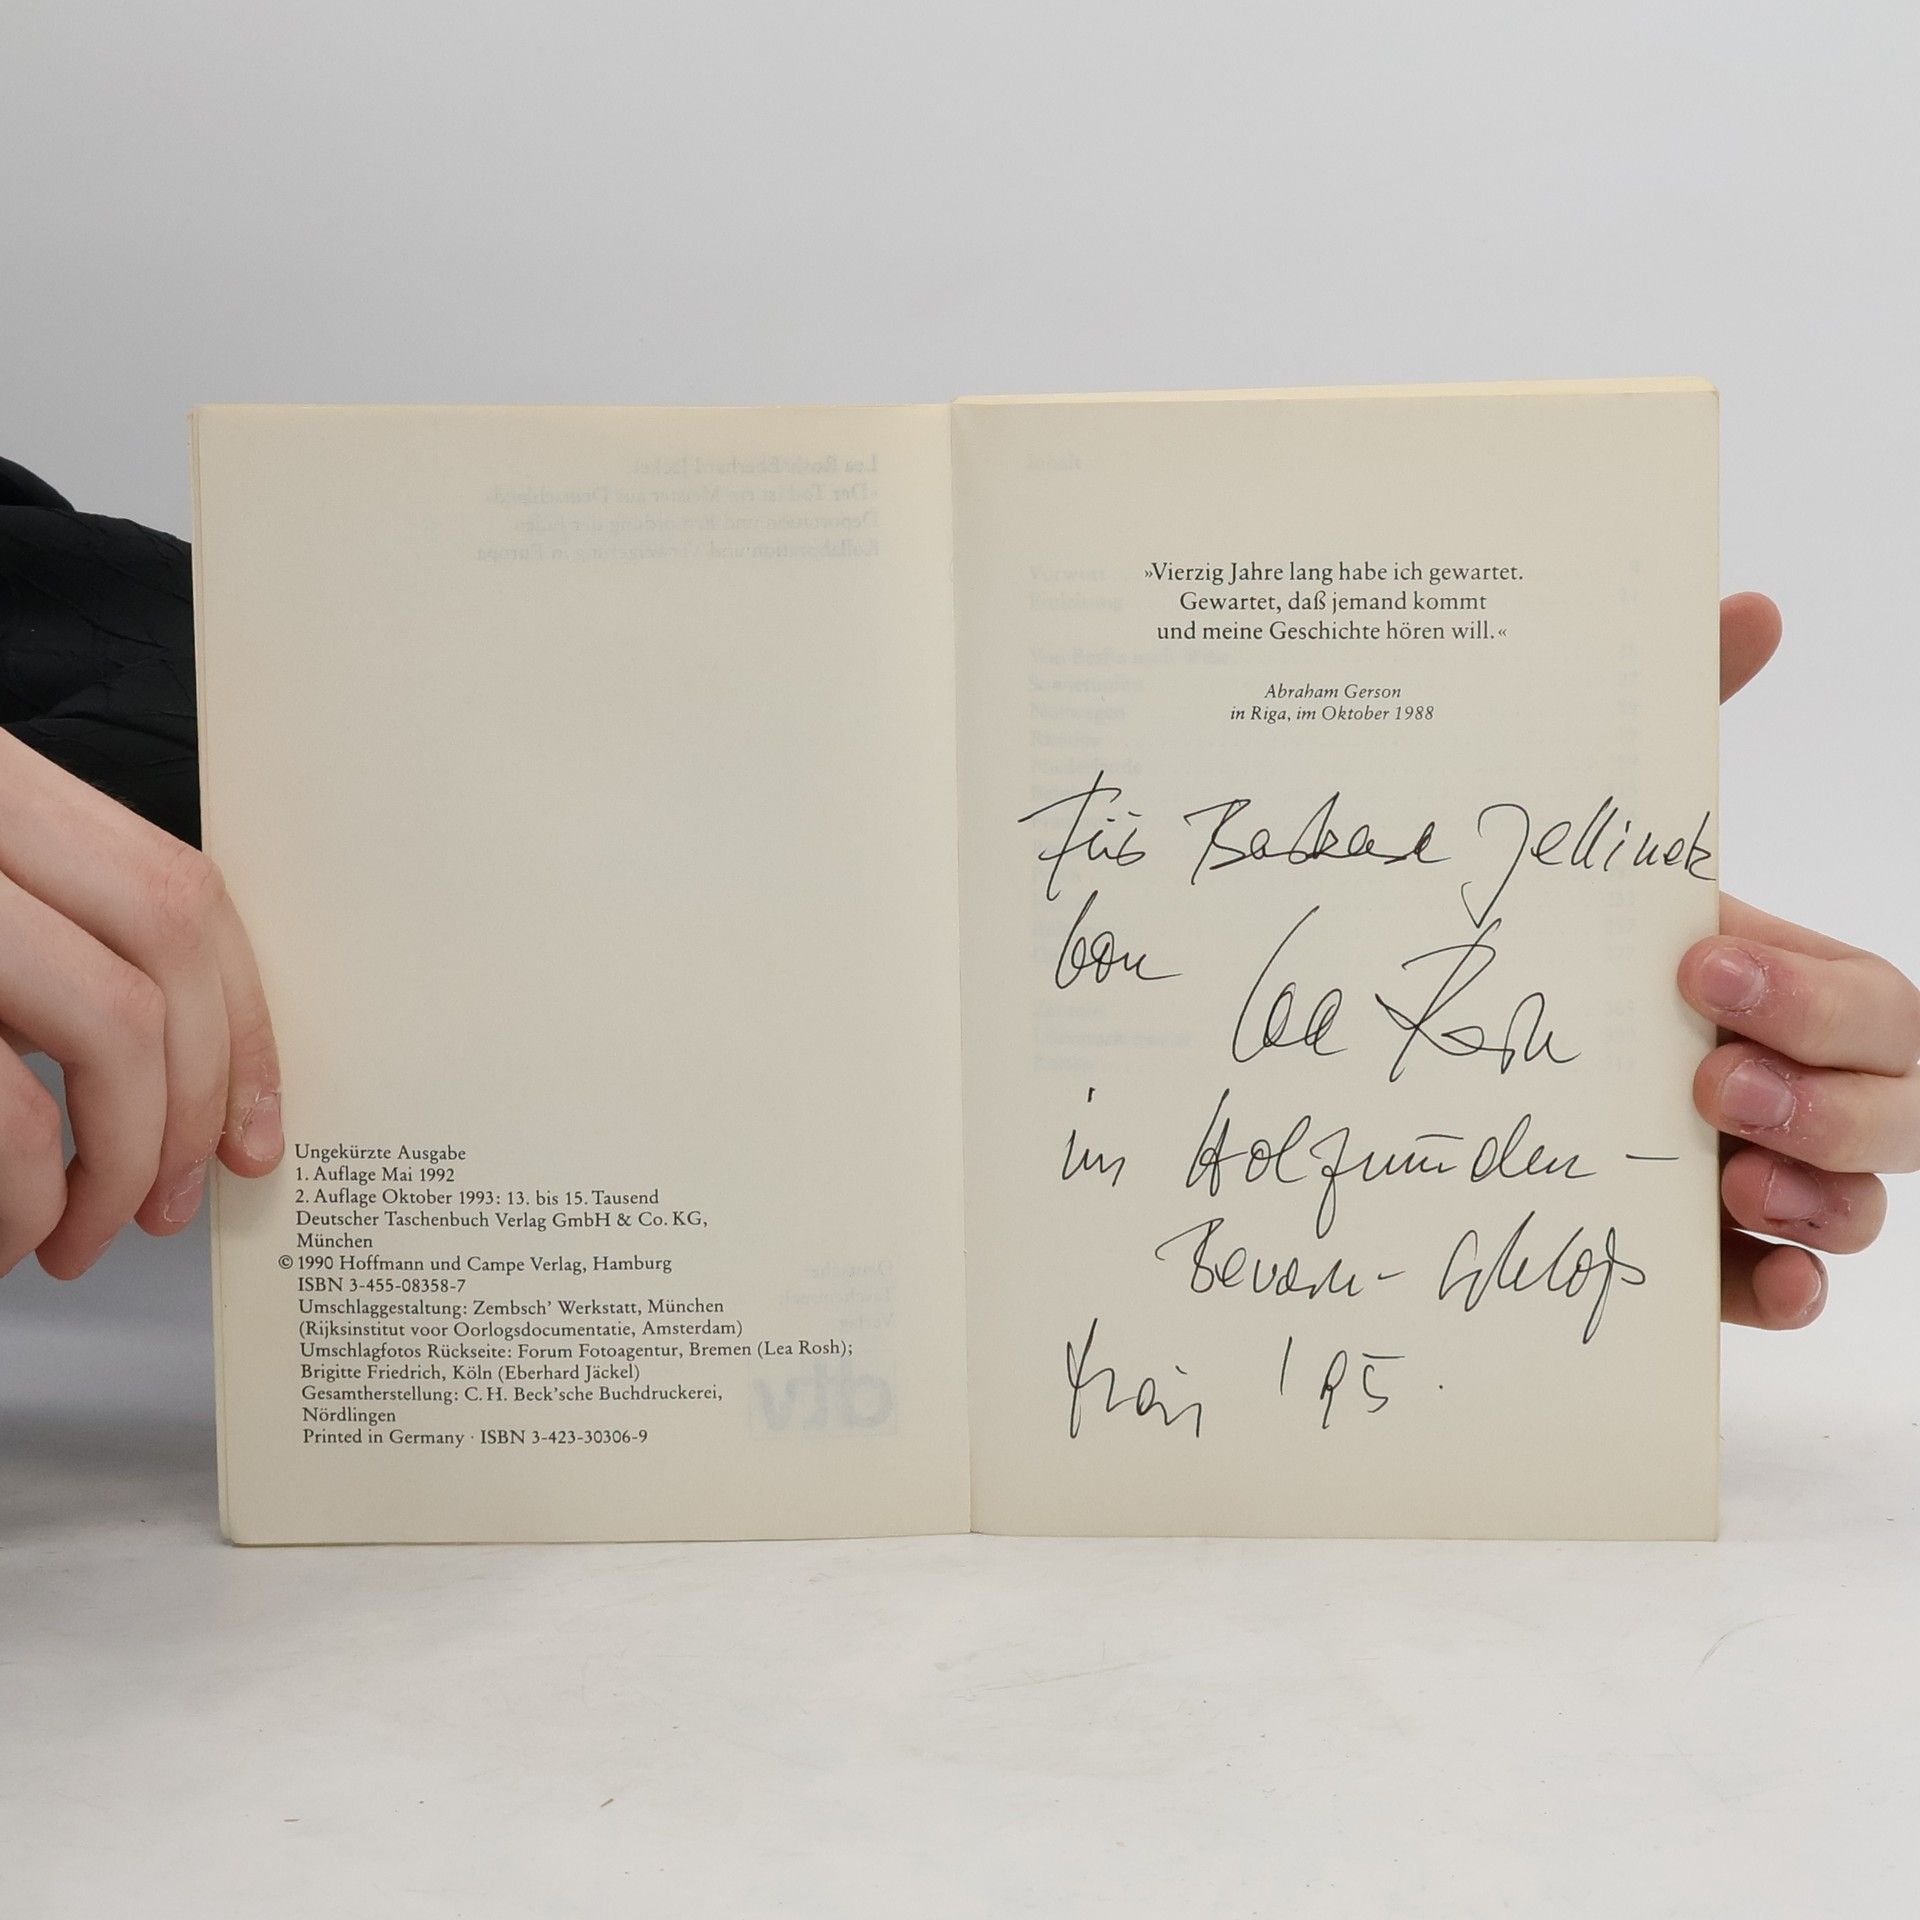 Ungekürzte Ausgabe
1. Auflage Mai 1992
2. Auflage Oktober 1993: 13. bis 15. Tausend
Deutscher Taschenbuch Verlag GmbH & Co. KG,
München
© 1990 Hoffmann und Campe Verlag, Hamburg
ISBN 3-455-08358-7
Umschlaggestaltung: Zembsch’ Werkstatt, München
(Rijksinstitut voor Oorlogsdocumentatie, Amsterdam)
Umschlagfotos Rückseite: Forum Fotoagentur, Bremen (Lea Rosh);
Brigitte Friedrich, Köln (Eberhard Jäckel)
Gesamtherstellung: C. H. Beck’sche Buchdruckerei,
Nördlingen
Printed in Germany · ISBN 3-423-30306-9
»Vierzig Jahre lang habe ich gewartet.
Gewartet, daß jemand kommt
und meine Geschichte hören will.«
Abraham Gerson
in Riga, im Oktober 1988
Für Barbara Jellinek
von Lea Rosh
in Holzminden –
Bevern - Schloß
Mai '95.